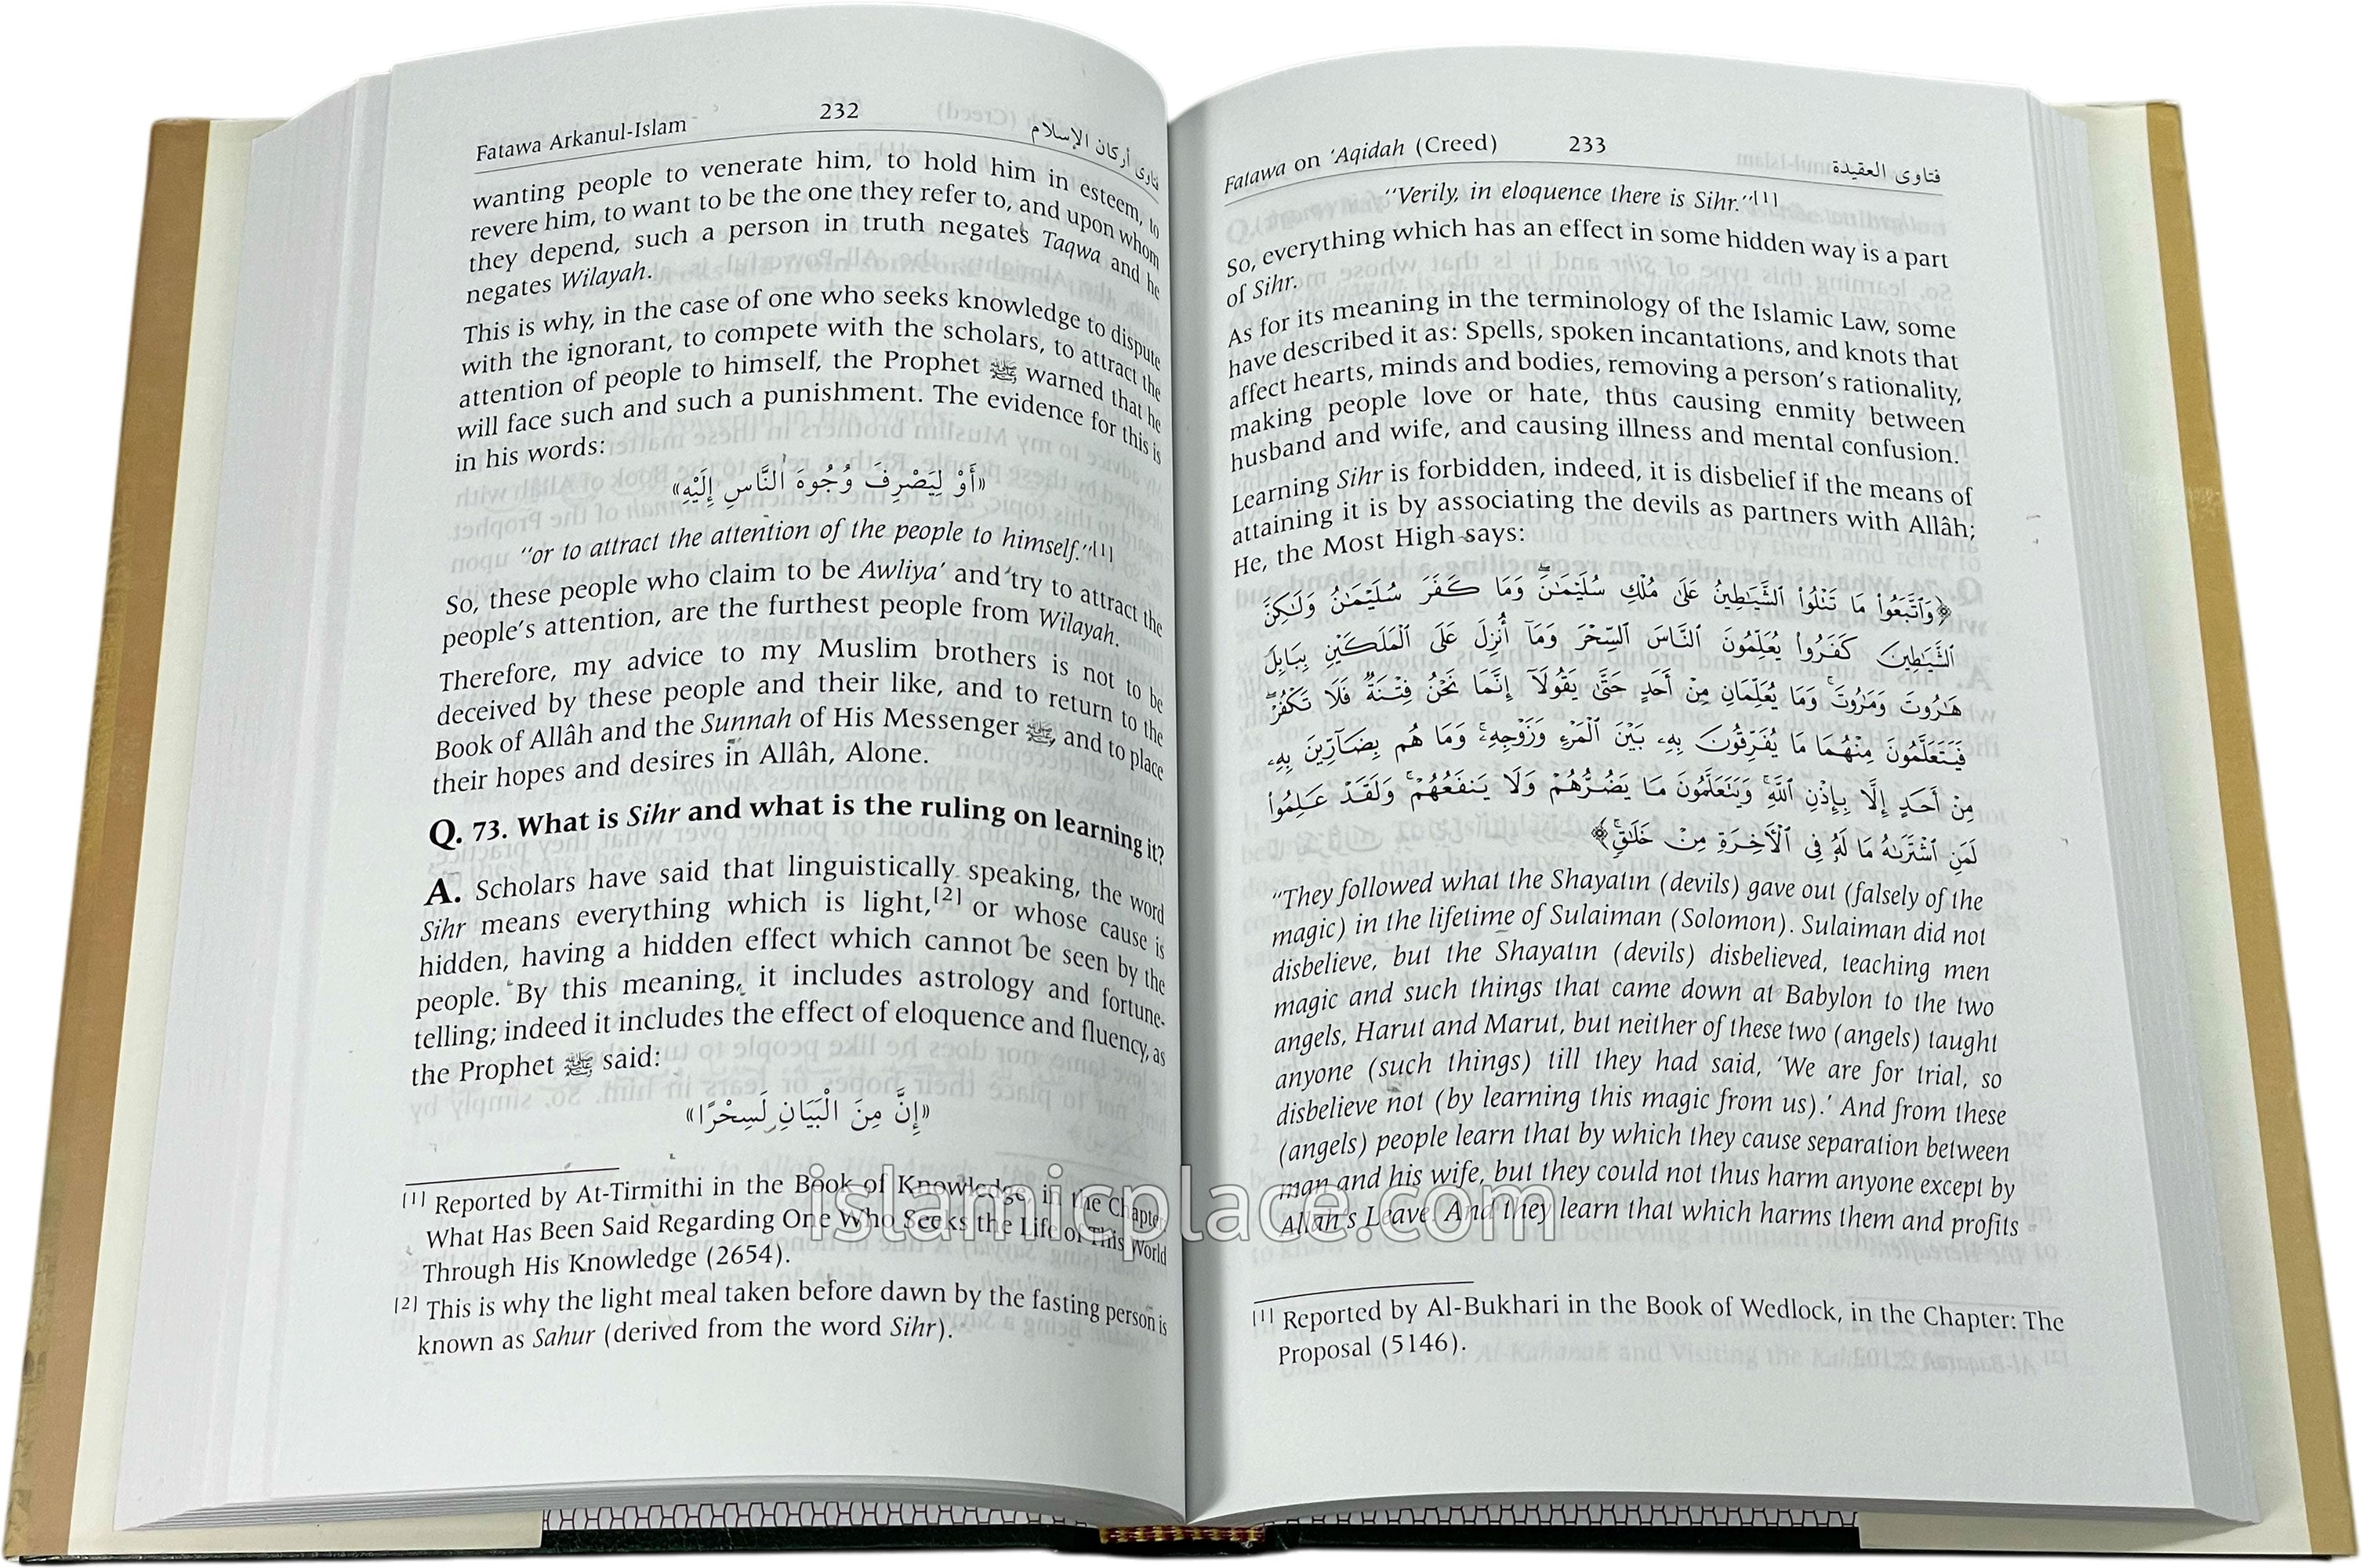 Fatawa Arkanul-Islam 232 فتاوى أركان الإسلام
wanting people to venerate him, to hold him in esteem, to
revere him, to want to be the one they refer to, and upon whom
they depend, such a person in truth negates Taqwa and he
negates Wilayah.
This is why, in the case of one who seeks knowledge to dispute
with the ignorant, to compete with the scholars, to attract the
attention of people to himself, the Prophet ﷺ warned that he
will face such and such a punishment. The evidence for this is
in his words:
«أَوْ لِيَصْرِفَ وُجُوهَ النَّاسِ إِلَيْهِ»
“or to attract the attention of the people to himself.”[1]
So, these people who claim to be Awliya’ and try to attract the
people’s attention, are the furthest people from Wilayah.
Therefore, my advice to my Muslim brothers is not to be
deceived by these people and their like, and to return to the
Book of Allâh and the Sunnah of His Messenger ﷺ and to place
their hopes and desires in Allâh, Alone.
Q. 73. What is Sihr and what is the ruling on learning it?
A. Scholars have said that linguistically speaking, the word
Sihr means everything which is light,[2] or whose cause is
hidden, having a hidden effect which cannot be seen by the
people. By this meaning, it includes astrology and fortune-
telling; indeed it includes the effect of eloquence and fluency, as
the Prophet ﷺ said:
«إِنَّ مِنَ الْبَيَانِ لَسِحْرًا»
[1] Reported by At-Tirmithi in the Book of Knowledge, in the Chapter
What Has Been Said Regarding One Who Seeks the Life of This World
Through His Knowledge (2654).
[2] This is why the light meal taken before dawn by the fasting person is
known as Sahur (derived from the word Sihr).
Fatawa on ‘Aqidah (Creed) 233 فتاوى العقيدة
“Verily, in eloquence there is Sihr.”[1]
So, everything which has an effect in some hidden way is a part
of Sihr.
As for its meaning in the terminology of the Islamic Law, some
have described it as: Spells, spoken incantations, and knots that
affect hearts, minds and bodies, removing a person’s rationality,
making people love or hate, thus causing enmity between
husband and wife, and causing illness and mental confusion.
Learning Sihr is forbidden, indeed, it is disbelief if the means of
attaining it is by associating the devils as partners with Allâh;
He, the Most High says:
﴿وَٱتَّبَعُوا۟ مَا تَتْلُوا۟ ٱلشَّيَـٰطِينُ عَلَىٰ مُلْكِ سُلَيْمَـٰنَ ۖ وَمَا كَفَرَ سُلَيْمَـٰنُ وَلَـٰكِنَّ
ٱلشَّيَـٰطِينَ كَفَرُوا۟ يُعَلِّمُونَ ٱلنَّاسَ ٱلسِّحْرَ وَمَآ أُنزِلَ عَلَى ٱلْمَلَكَيْنِ بِبَابِلَ
هَـٰرُوتَ وَمَـٰرُوتَ ۚ وَمَا يُعَلِّمَانِ مِنْ أَحَدٍ حَتَّىٰ يَقُولَآ إِنَّمَا نَحْنُ فِتْنَةٌ فَلَا تَكْفُرْ ۖ
فَيَتَعَلَّمُونَ مِنْهُمَا مَا يُفَرِّقُونَ بِهِۦ بَيْنَ ٱلْمَرْءِ وَزَوْجِهِۦ ۚ وَمَا هُم بِضَآرِّينَ بِهِۦ
مِنْ أَحَدٍ إِلَّا بِإِذْنِ ٱللَّهِ ۚ وَيَتَعَلَّمُونَ مَا يَضُرُّهُمْ وَلَا يَنفَعُهُمْ ۚ وَلَقَدْ عَلِمُوا۟
لَمَنِ ٱشْتَرَىٰهُ مَا لَهُۥ فِى ٱلْـَٔاخِرَةِ مِنْ خَلَـٰقٍ ۚ﴾
“They followed what the Shayatın (devils) gave out (falsely of the
magic) in the lifetime of Sulaiman (Solomon). Sulaiman did not
disbelieve, but the Shayatın (devils) disbelieved, teaching men
magic and such things that came down at Babylon to the two
angels, Harut and Marut, but neither of these two (angels) taught
anyone (such things) till they had said, ‘We are for trial, so
disbelieve not (by learning this magic from us).’ And from these
(angels) people learn that by which they cause separation between
man and his wife, but they could not thus harm anyone except by
Allah’s Leave. And they learn that which harms them and profits
[1] Reported by Al-Bukhari in the Book of Wedlock, in the Chapter: The
Proposal (5146).
islamicplace.com